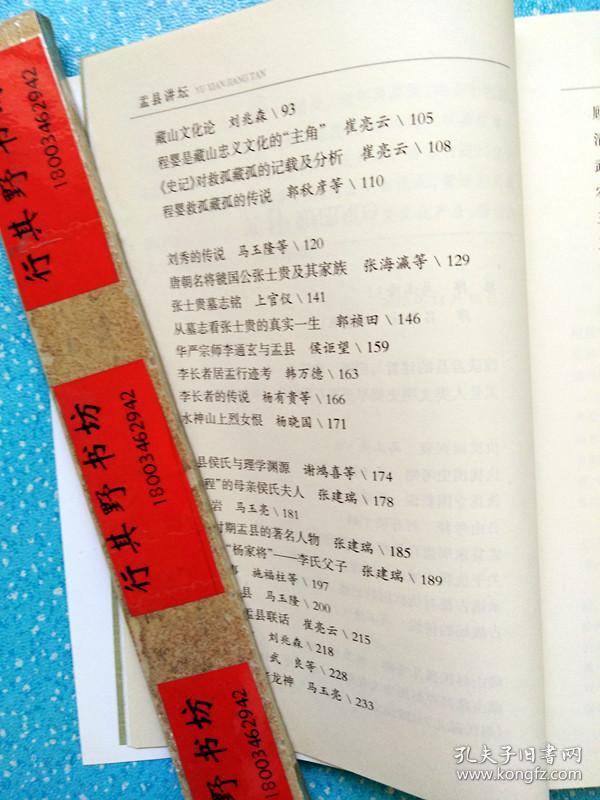 盂县讲坛 YU XIAN JIANG TAN
藏山文化论 刘兆森\93
程婴是藏山忠义文化的“主角” 崔亮云\105
《史记》对救孤藏孤的记载及分析 崔亮云\108
程婴救孤藏孤的传说 郭秋彦等\110
刘秀的传说 马玉隆等\120
唐朝名将虢国公张士贵及其家族 张海瀛等\129
张士贵墓志铭 上官仪\141
从墓志看张士贵的真实一生 郭祯田\146
华严宗师李通玄与盂县 侯讵望\159
李长者居盂行迹考 韩万德\163
李长者的传说 杨有贵等\166
水神山上烈女恨 杨晓国\171
县侯氏与理学渊源 谢鸿喜等\174
程”的母亲侯氏夫人 张建瑞\178
岩 马玉亮\181
时期盂县的著名人物 张建瑞\185
“杨家将”——李氏父子 张建瑞\189
事 施福柱等\197
县 马玉隆\200
盂县联话 崔亮云\215
刘兆森\218
武良等\228
龙神 马玉亮\233
行其野书坊
18003462942
行其野书坊
18003462942
行其野书坊
18003462942
孔夫子旧书网
www.kongfz.com